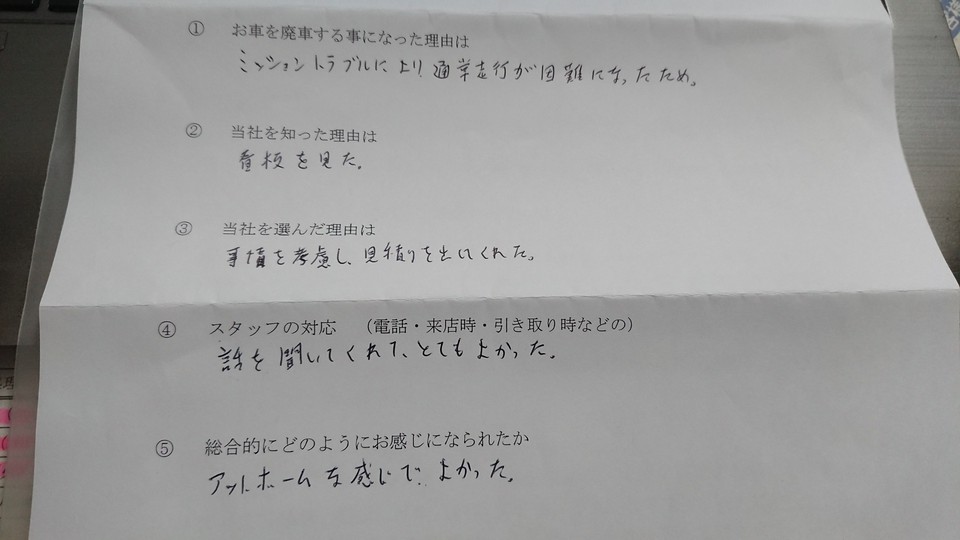 ① お車を廃車する事になった理由は
ミッショントラブルにより通常走行が困難になったため。
② 当社を知った理由は
看板を見た。
③ 当社を選んだ理由は
事情を考慮し、見積りを出してくれた。
④ スタッフの対応 （電話・来店時・引き取り時などの）
話を聞いてくれて、とてもよかった。
⑤ 総合的にどのようにお感じになられたか
アットホームな感じで、よかった。